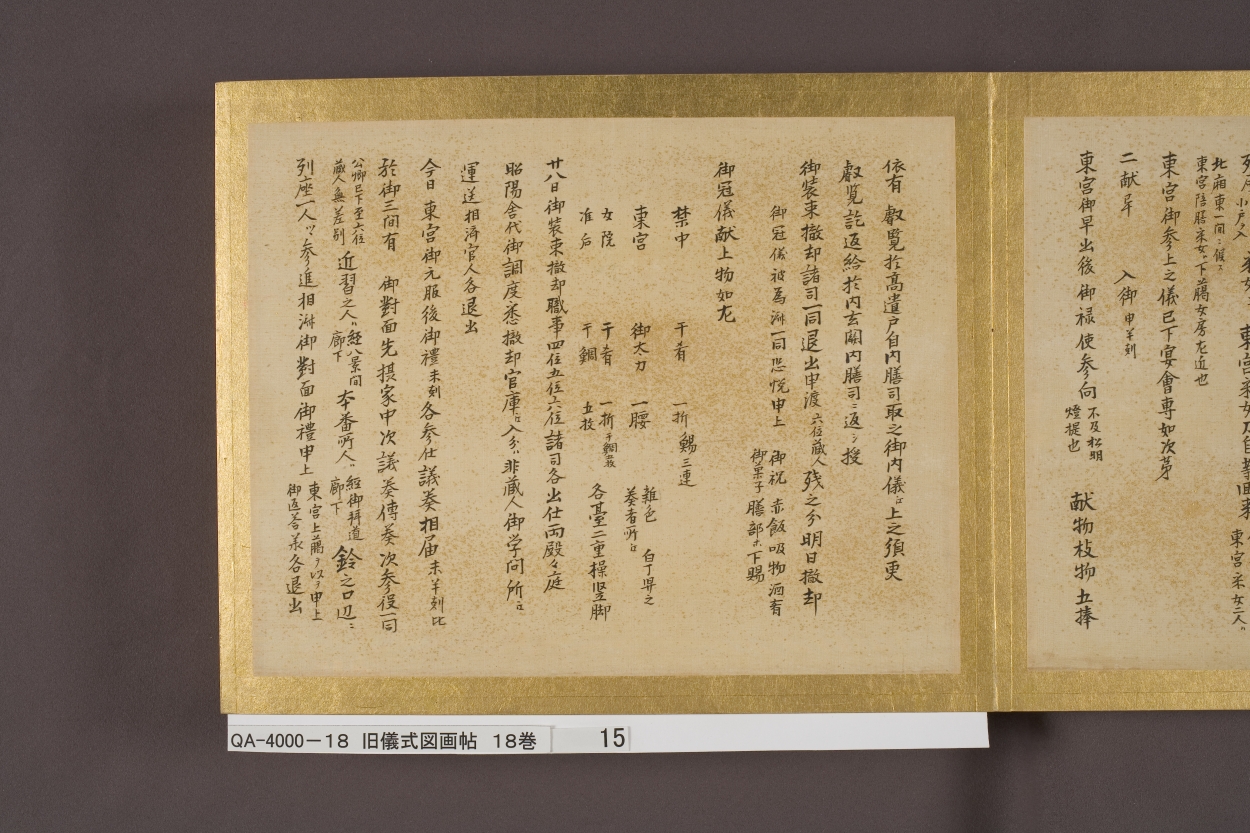 東宮御参上之儀已下宴會専如次第
二献畢　入御申半刻
東宮御早出後御禄使参向 不及松明 燈提也 献物枝物五捧
依有　叡覧於高遣戸自内膳司取之御内儀江上之須臾
叡覧訖返給於内玄關内膳司ニ返シ授
御装束撤却諸司一同退出申渡 六位蔵人 残之分明日撤却
御冠儀被為済一同恐悦申上　御祝 赤飯吸物酒肴
御菓子 膳部等下賜
御冠儀献上物如左
禁中　干肴　一折 鯣三連
東宮　御太刀　一腰　雑色 奏者所江 白丁舁之
女院　干肴　一折
准后　干鯛　五枚　各臺二重操竪脚
廿八日御装束撤却職事四位五位六位諸司各出仕両殿々庭
昭陽舎代御調度悉撤却官庫江入分ハ非蔵人御学問所江
運送相済官人各退出
今日　東宮御元服後御禮 未刻 各参仕議奏相届 未半刻比
於御三間有　御對面先摂家申次議奏傳奏次参役一同
公卿已下至六位 蔵人無差別 近習之人ハ 経八景間 廊下 本番所人ハ 経御拝道 廊下 鈴之口辺ニ
列座一人ツヽ参進相済御對面御禮申上 東宮上臈ヲ以テ申上
御返答承各退出
QA-4000-18 旧儀式図画帖 18巻　15